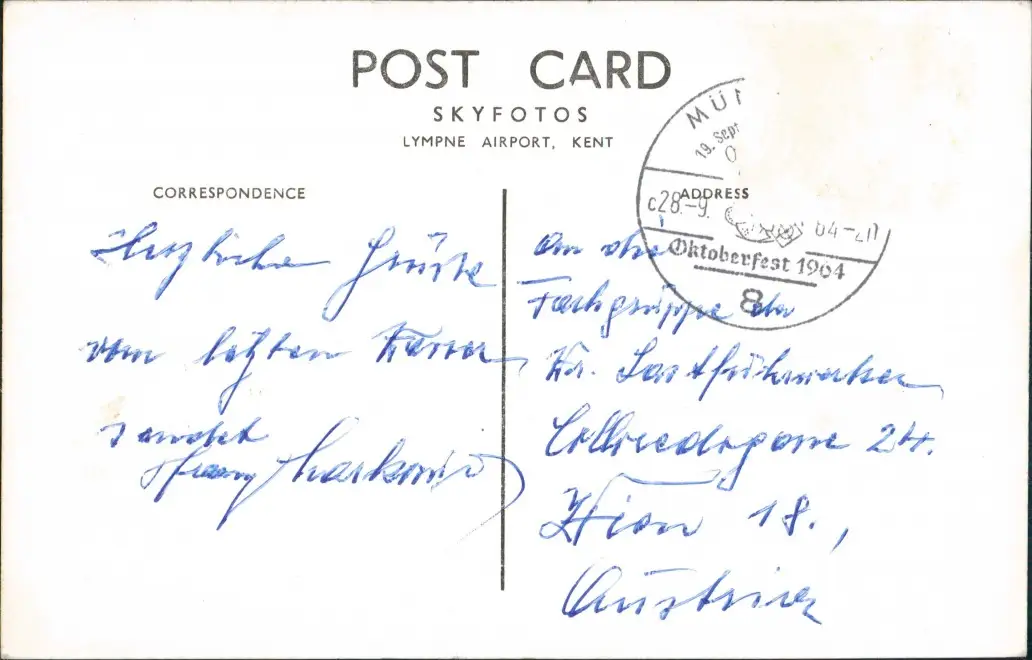 POST CARD
SKYFOTOS
LYMPNE AIRPORT, KENT
CORRESPONDENCE
ADDRESS
MÜN
19. Sept
c28.-9. 64-20
Oktoberfest 1964
8
Herzliche Grüße
vom letzten
sendet
Franz
An die
Fachgruppe der
Kr. Lastfuhrwerker
24.
Wien 18.,
Austria